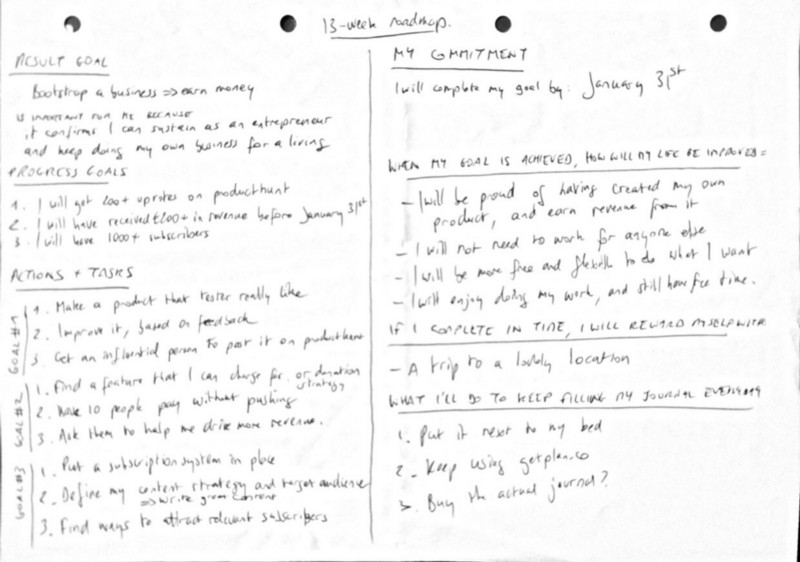 13-week roadmap.
RESULT GOAL
Bootstrap a business => earn money
IS IMPORTANT FOR ME BECAUSE
it confirms I can sustain as an entrepreneur
and keep doing my own business for a living
PROGRESS GOALS
1. I will get 200+ upvotes on producthunt
2. I will have received £200+ in revenue before January 31st
3. I will have 1000+ subscribers
ACTIONS + TASKS
GOAL #1
1. Make a product that tester really like
2. Improve it, based on feedback
3. Get an influential person to post it on producthunt
GOAL #2
1. Find a feature that I can charge for. or donation
strategy
2. Have 10 people pay without pushing
3. Ask them to help me drive more revenue.
GOAL #3
1. Put a subscription system in place
2. Define my content strategy and target audience
=> write great content
3. Find ways to attract relevant subscribers
MY COMMITMENT
I will complete my goal by: January 31st
WHEN MY GOAL IS ACHIEVED, HOW WILL MY LIFE BE IMPROVED=
- I will be proud of having created my own
product, and earn revenue from it
- I will not need to work for anyone else
- I will be more free and flexible to do what I want
- I will enjoy doing my work, and still have free time.
IF I COMPLETE IN TIME, I WILL REWARD MYSELF WITH
- A trip to a lovely location
WHAT I'LL DO TO KEEP FILLING MY JOURNAL EVERYDAY
1. Put it next to my bed
2. Keep using getplan.co
3. Buy the actual journal?